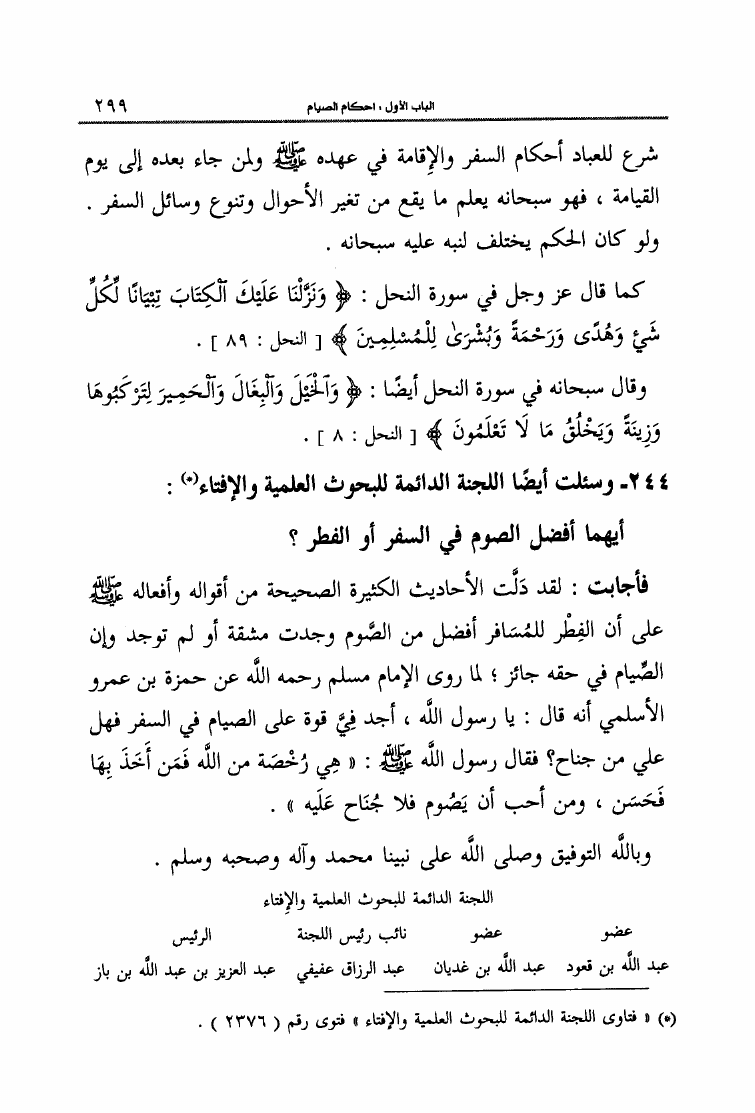 الباب الأول : احكام الصيام ٢٩٩
شرع للعباد أحكام السفر والإِقامة في عهده ﷺ ولمن جاء بعده إلى يوم
القيامة ، فهو سبحانه يعلم ما يقع من تغير الأحوال وتنوع وسائل السفر .
ولو كان الحكم يختلف لنبه عليه سبحانه .
كما قال عز وجل في سورة النحل : ﴿ وَنَزَّلْنَا عَلَيْكَ ٱلْكِتَابَ تِبْيَانًا لِّكُلِّ
شَيْءٍ وَهُدًى وَرَحْمَةً وَبُشْرَىٰ لِلْمُسْلِمِينَ ﴾ [ النحل : ٨٩ ] .
وقال سبحانه في سورة النحل أيضًا : ﴿ وَٱلْخَيْلَ وَٱلْبِغَالَ وَٱلْحَمِيرَ لِتَرْكَبُوهَا
وَزِينَةً وَيَخْلُقُ مَا لَا تَعْلَمُونَ ﴾ [ النحل : ٨ ] .
٢٤٤ـ وسئلت أيضًا اللجنة الدائمة للبحوث العلمية والإفتاء(*) :
أيهما أفضل الصوم في السفر أو الفطر ؟
فأجابت : لقد دَلَّت الأحاديث الكثيرة الصحيحة من أقواله وأفعاله ﷺ
على أن الفِطْر للمُسَافر أفضل من الصَّوم وجدت مشقة أو لم توجد وإن
الصِّيام في حقه جائز ؛ لما روى الإمام مسلم رحمه اللَّه عن حمزة بن عمرو
الأسلمي أنه قال : يا رسول اللَّه ، أجد فِيَّ قوة على الصيام في السفر فهل
علي من جناح؟ فقال رسول اللَّه ﷺ : « هِي رُخْصَة من اللَّه فَمَن أَخَذَ بِهَا
فَحَسَن ، ومن أحب أن يَصُوم فلا جُنَاح عَلَيه » .
وباللَّه التوفيق وصلى اللَّه على نبينا محمد وآله وصحبه وسلم .
اللجنة الدائمة للبحوث العلمية والإِفتاء
عضو عضو نائب رئيس اللجنة الرئيس
عبد اللَّه بن قعود عبد اللَّه بن غديان عبد الرزاق عفيفي عبد العزيز بن عبد اللَّه بن باز
(*) « فتاوى اللجنة الدائمة للبحوث العلمية والإفتاء » فتوى رقم ( ٢٣٧٦ ) .